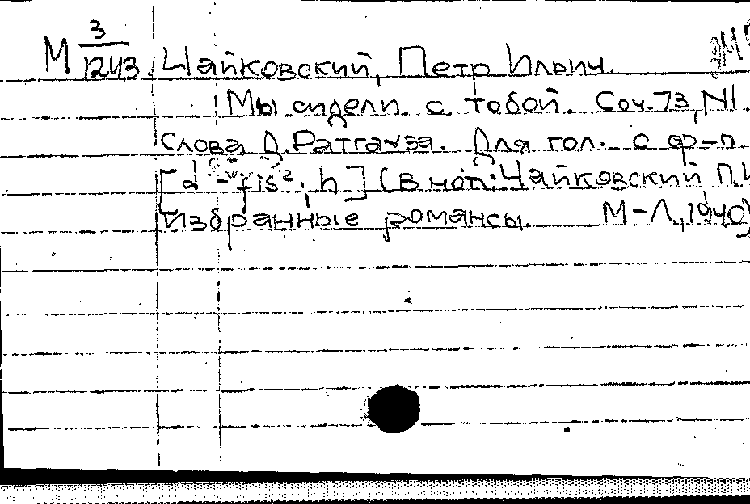 М 3/1243. Чайковский, Петр Ильич.
Мы сидели с тобой. Соч. 73, N1.
Слова Д. Ратгауза. Для гол. с ф-п.
[d - fis²; h] (В нот.: Чайковский П.И
Избранные романсы. М-Л, 1940)